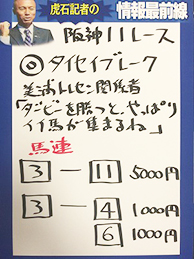 虎石記者の
情報最前線
阪神11レース
◎タイセイブレーク
美浦トレセン関係者
「ダービーを勝つと、やっぱり
イイ馬が集まるね」
馬連
3 ー 11 5000円
3 ー 4 1000円
6 1000円